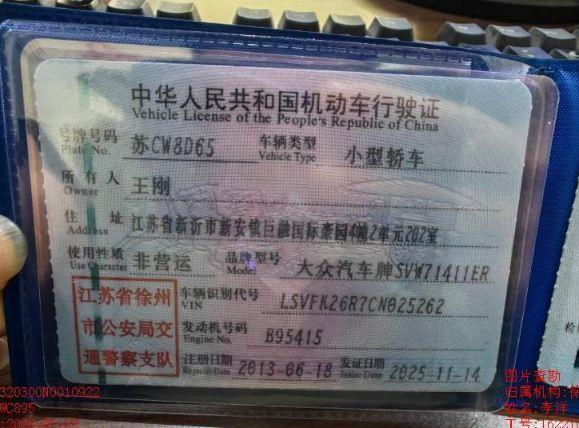 中华人民共和国机动车行驶证
Vehicle License of the People's Republic of China
号牌号码 苏CW8D65 车辆类型 小型轿车
Plate No. Vehicle Type
所有人 王刚
Owner
住址 江苏省新沂市新安镇巨融国际豪园4幢2单元202室
Address
使用性质 非营运 品牌型号 大众汽车牌SVW71411ER
Use Character Model
江苏省徐州 车辆识别代号 LSVFK26R7CN025262
VIN
市公安局交 发动机号码 B95415
Engine No.
通警察支队 注册日期 2013-06-18 发证日期 2025-11-14
Register Date Issue Date
图片查勘
320300N0010922 归属机构:
WC895 姓名:李洋
工号: